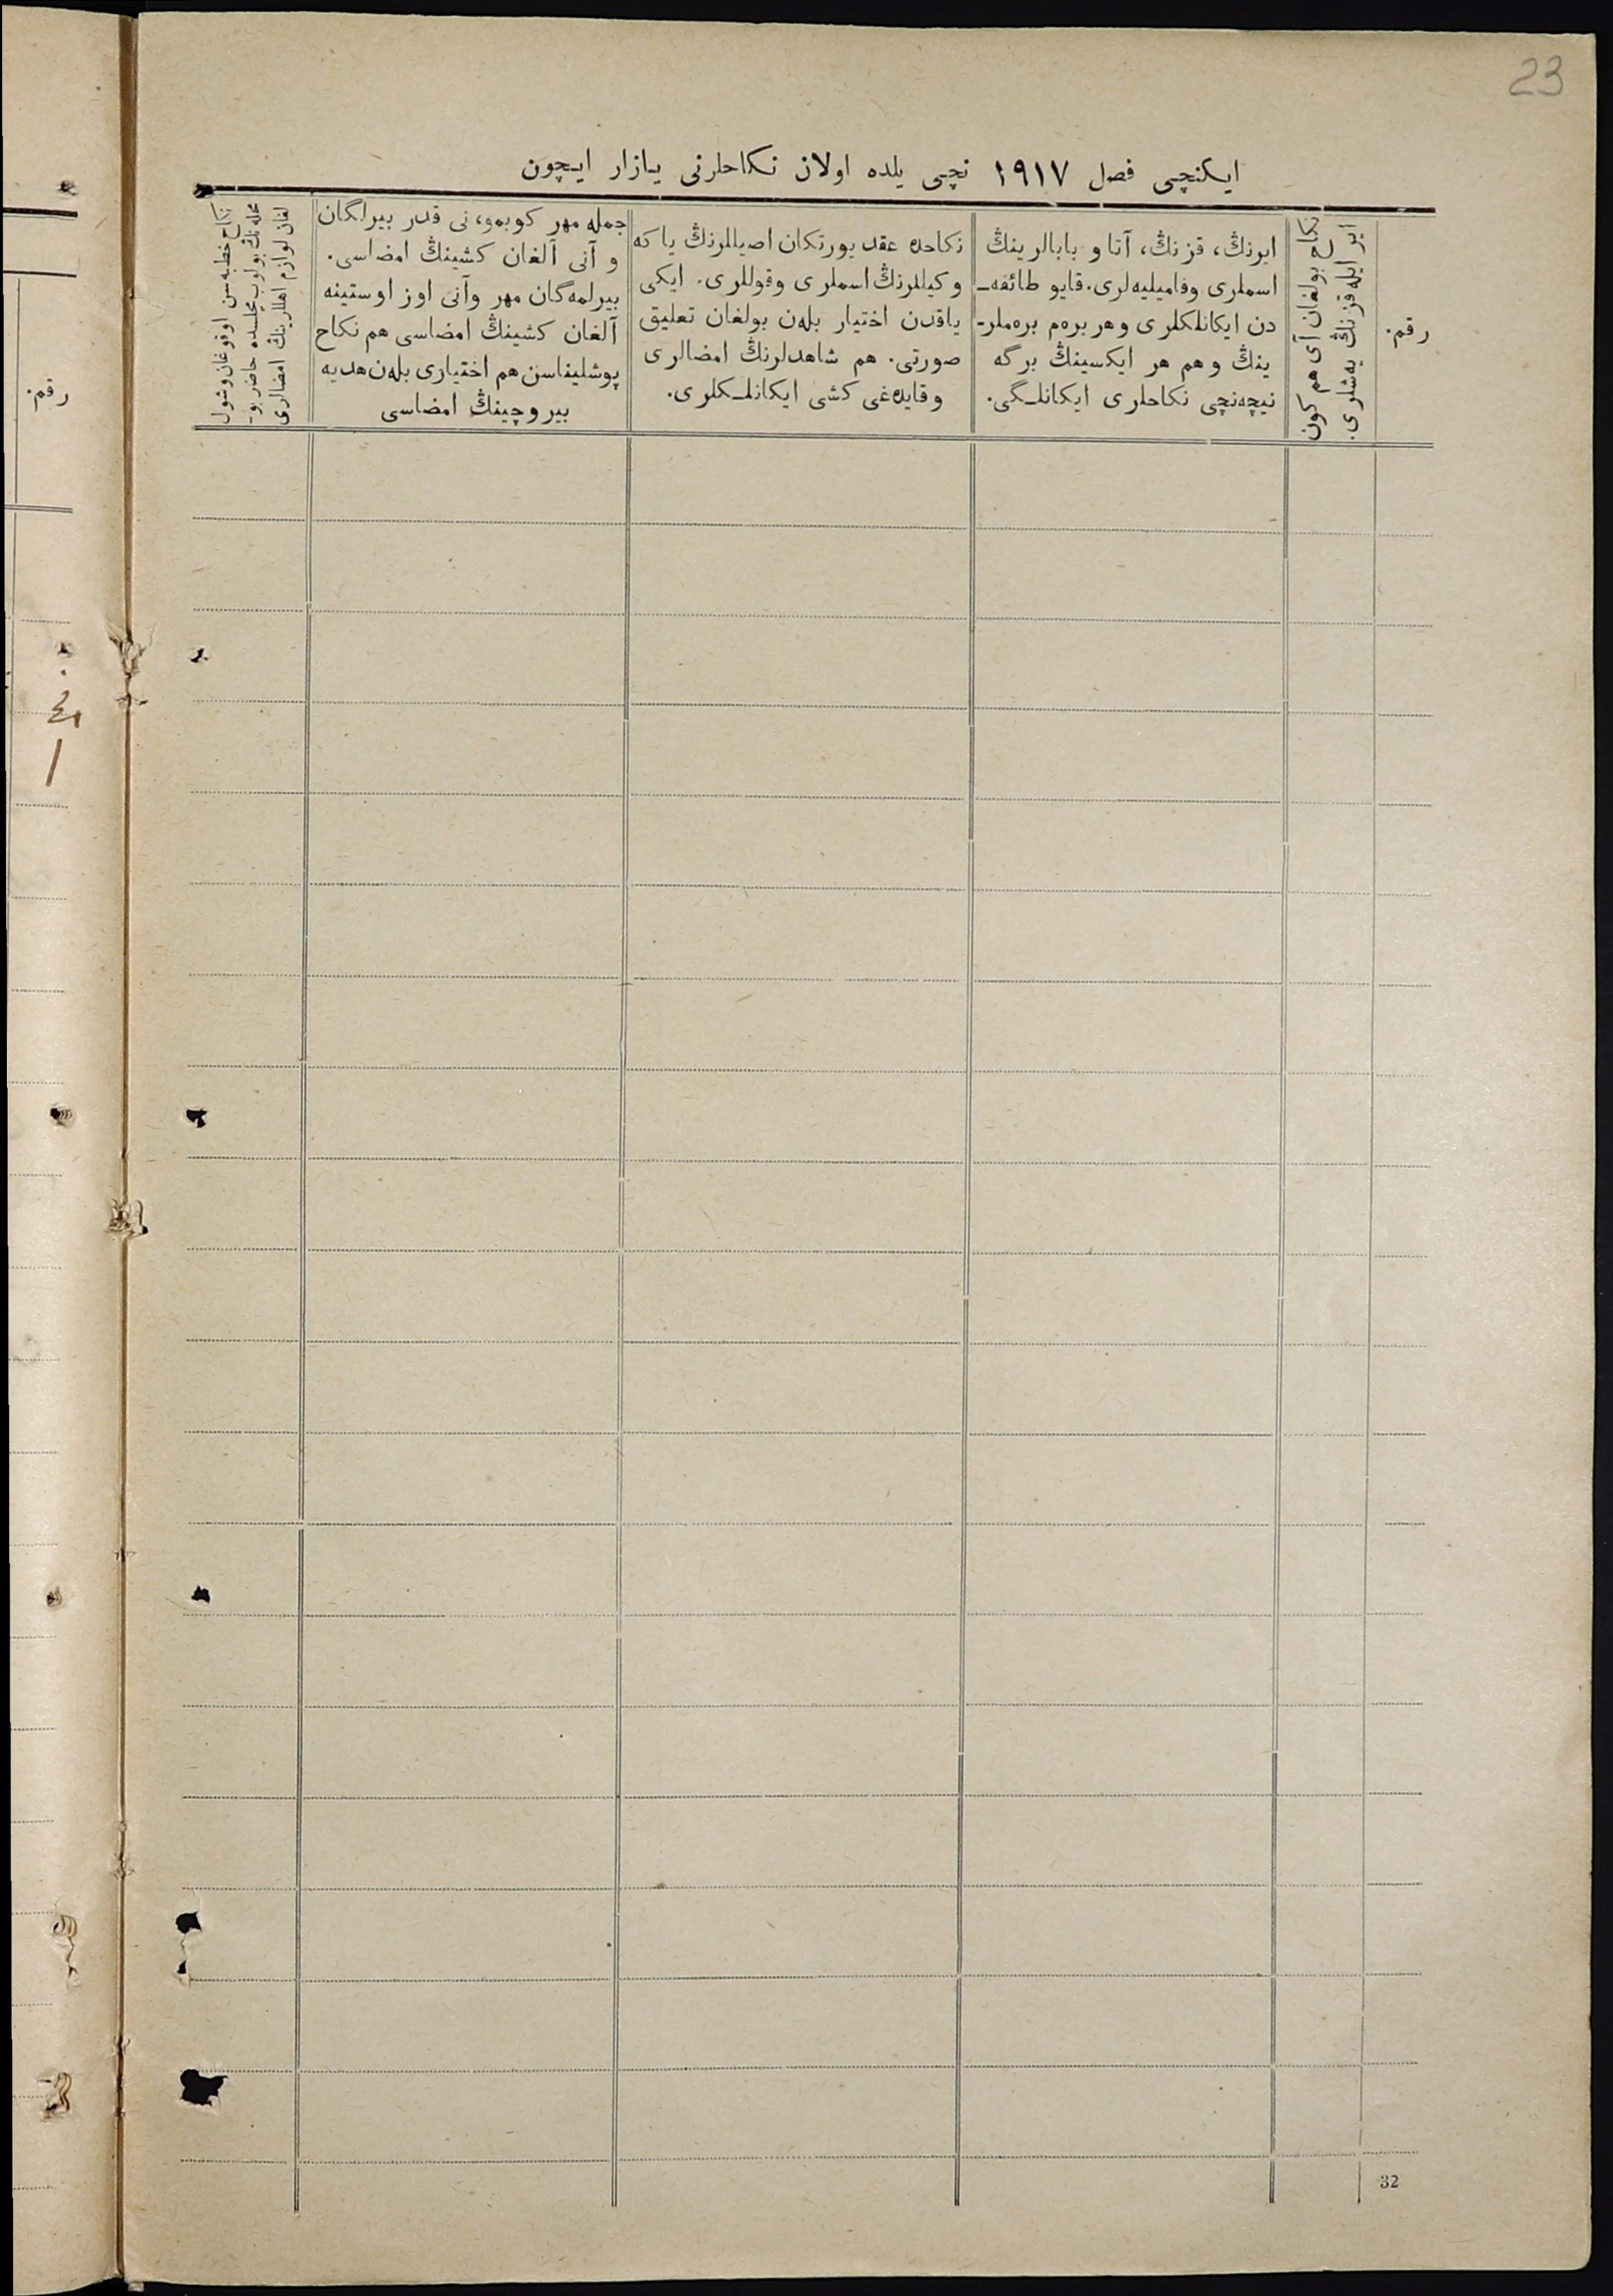 23
ایکنچی فصل ١٩١٧ نچی یلده اولان نکاحلرنی یازار ایچون
رقم.
نکاح بولغان آی هم کون
ایر ایله قزنڭ یه‌شلری.
ایرنڭ، قزنڭ، آتا و بابالرینڭ
اسملری وفامیلیه‌لری. قایو طائفه‌ـ
دن ایکانلکلری وهر بره‌م بره‌ملرـ
ینڭ وهم هر ایکسینڭ برگه
نیچه‌نچی نکاحلری ایکانلـگی.
نکاحده عقد یورتکان اصیللرنڭ یا که
وکیللرنڭ اسملری وقوللری. ایکی
یاقدن اختیار بله‌ن بولغان تعلیق
صورتی. هم شاهدلرنڭ امضالری
وقایده‌غی کشی ایکانلـکلری.
جمله مهر کوبمو، نی قدر بیرلگان
و آنی آلغان کشینڭ امضاسی.
بیرلمه‌گان مهر وآنی اوز اوستینه
آلغان کشینڭ امضاسی هم نکاح
پوشلیناسن هم اختیاری بله‌ن هدیه
بیروچینڭ امضاسی
نکاح خطبه‌سن اوقوغان وشول
محله‌نڭ بولوب مجلسده حاضر بوـ
لغان لوازم اهللارینڭ امضالری
رقم.
32